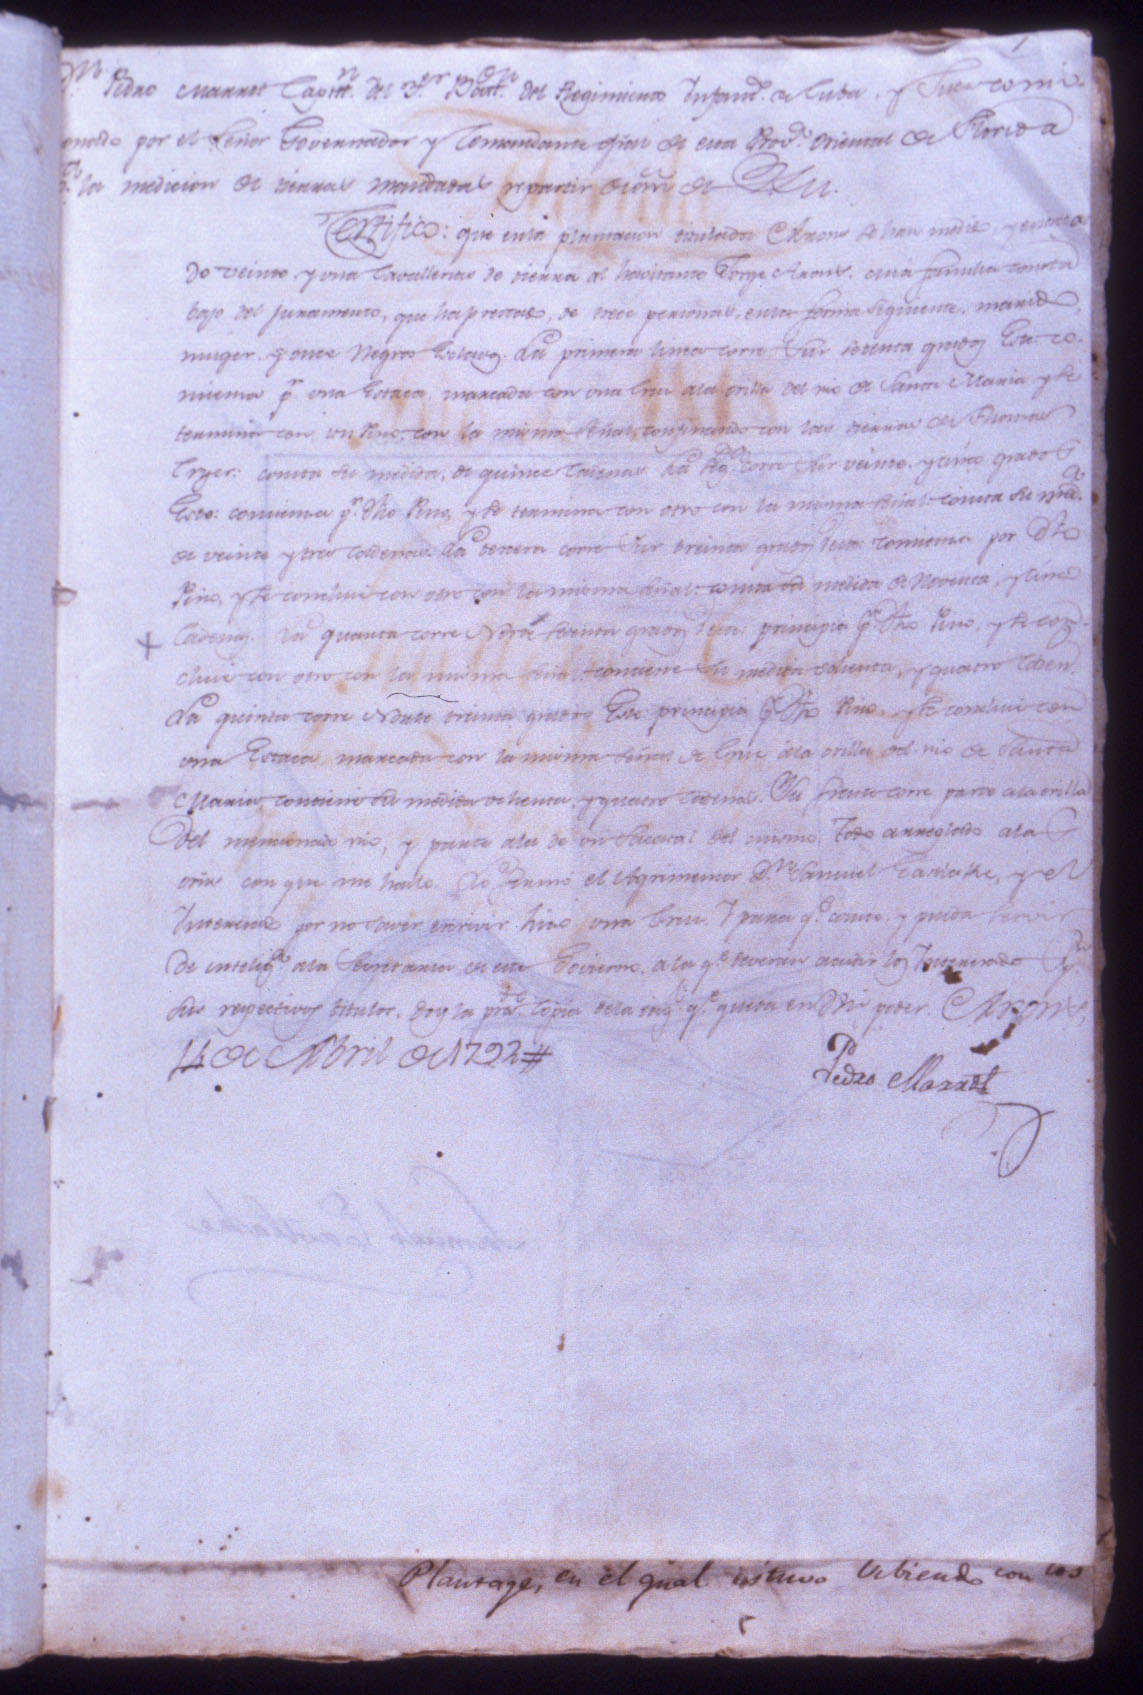 Dn. Pedro Marrot Capitn. del 3er. Batn. del Regimiento Infantª. de Cuba, y Juez comi-
onado por el Señor Governador y Comandante Gral de esta Prova. Oriental de Florida
pª. la medicion de tierras mandadas repartir de orn. de S. M.
Certifico: que en la plantacion titulada Arons se han medido, y
do veinte y una Cavallerias de tierra al havitante Jorge Arons, cuia familia consta
bajo del juramento, que ha prestado, de trece personas, en la forma siguiente, marido
muger, y once Negros Esclavos. La primera linea corre Sur setenta grados Este: co-
miensa pr. una Estaca, marcada con una Cruz a la orilla del rio de Santa Maria y se
termina con un Pino, con la misma señal, confinando con las tierras de Thomas
consta su medida, de quince Cadenas. La 2ª corre Sur veinte, y cinco grados
Este: comiensa pr. dho Pino, y se termina con otro con la misma señal: consta su medª.
de veinte y tres Cadenas. La tercera corre Sur treinta grados comiensa por Dho
Pino, y se concluie con otro con la misma señal: consta su medida de Noventa, y cinco
Cadenas. La quarta corre Norte setenta grados principia pr. Dho Pino, y se con-
cluie con otro con la misma señal: contiene su medida ochenta, y quatro Caden
La quinta corre Norte treinta grados Este: principia pr. Dho Pino, y se concluie con
una Estaca marcada con la misma señal de Cruz a la orilla del rio de Santa
Maria, contiene su medida ochenta, y quatro Cadenas. Su frente corre parte a la orilla
del mencionado rio, y parte a la de un del mismo. Todo arreglado a la
orn. con que me hallo. Lo firmó el Agrimensor Dn. Samuel Eastlake, y el
Interesado por no saver escrivir hizo una Cruz. Y para qe. conste, y pueda servir
de inteliga. a la Secretaria de este Govierno, a la qe. deveran acudir los Interesados pr.
sus respectivos titulos, doy la prete. Copia de la orig. qe. queda en mi poder. Arons,
14 de Abril de 1792 #
Pedro Marrot
Samuel Eastlake
Plantage, en el qual estuvo viviendo con los